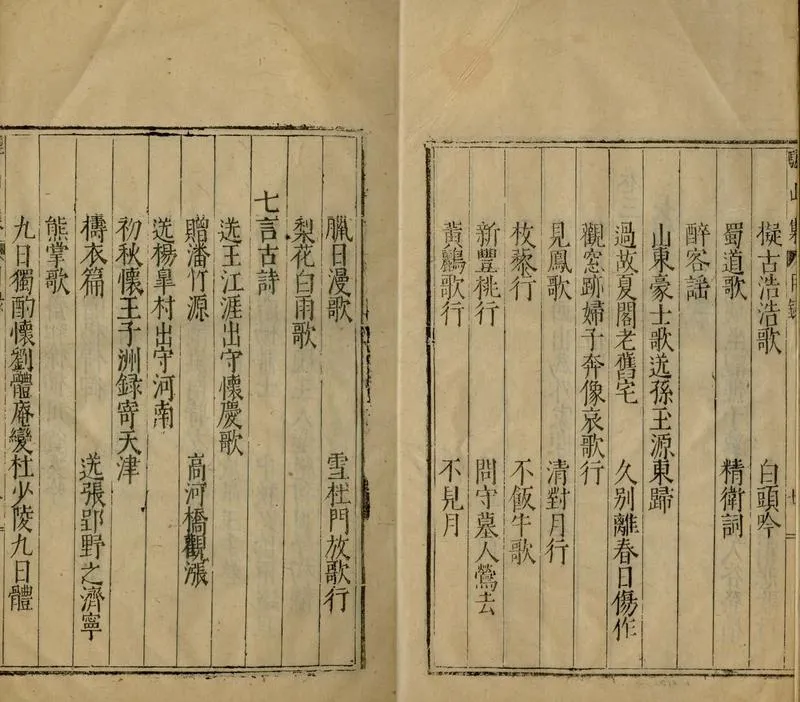 擬古浩浩歌 白頭吟
蜀道歌 精衛詞
醉客謡
山東豪士歌送孫玉源東歸
過故夏閣老舊宅 久别離春日傷作
觀窓跡婦子奔像哀歌行
見鳳歌 清對月行
枚藜行 不飯牛歌
新豐桃行 問守墓人鶯去
黄鸝歌行 不見月
臘日漫歌 雪杜門放歌行
梨花白雨歌
七言古詩
送王江涯出守懷慶歌
贈潘竹源 高河橋觀漲
送楊臯村出守河南
初秋懷王子洲録寄天津
擣衣篇 送張郢野之濟寧
熊掌歌
九日獨酌懷劉體庵變杜少陵九日體